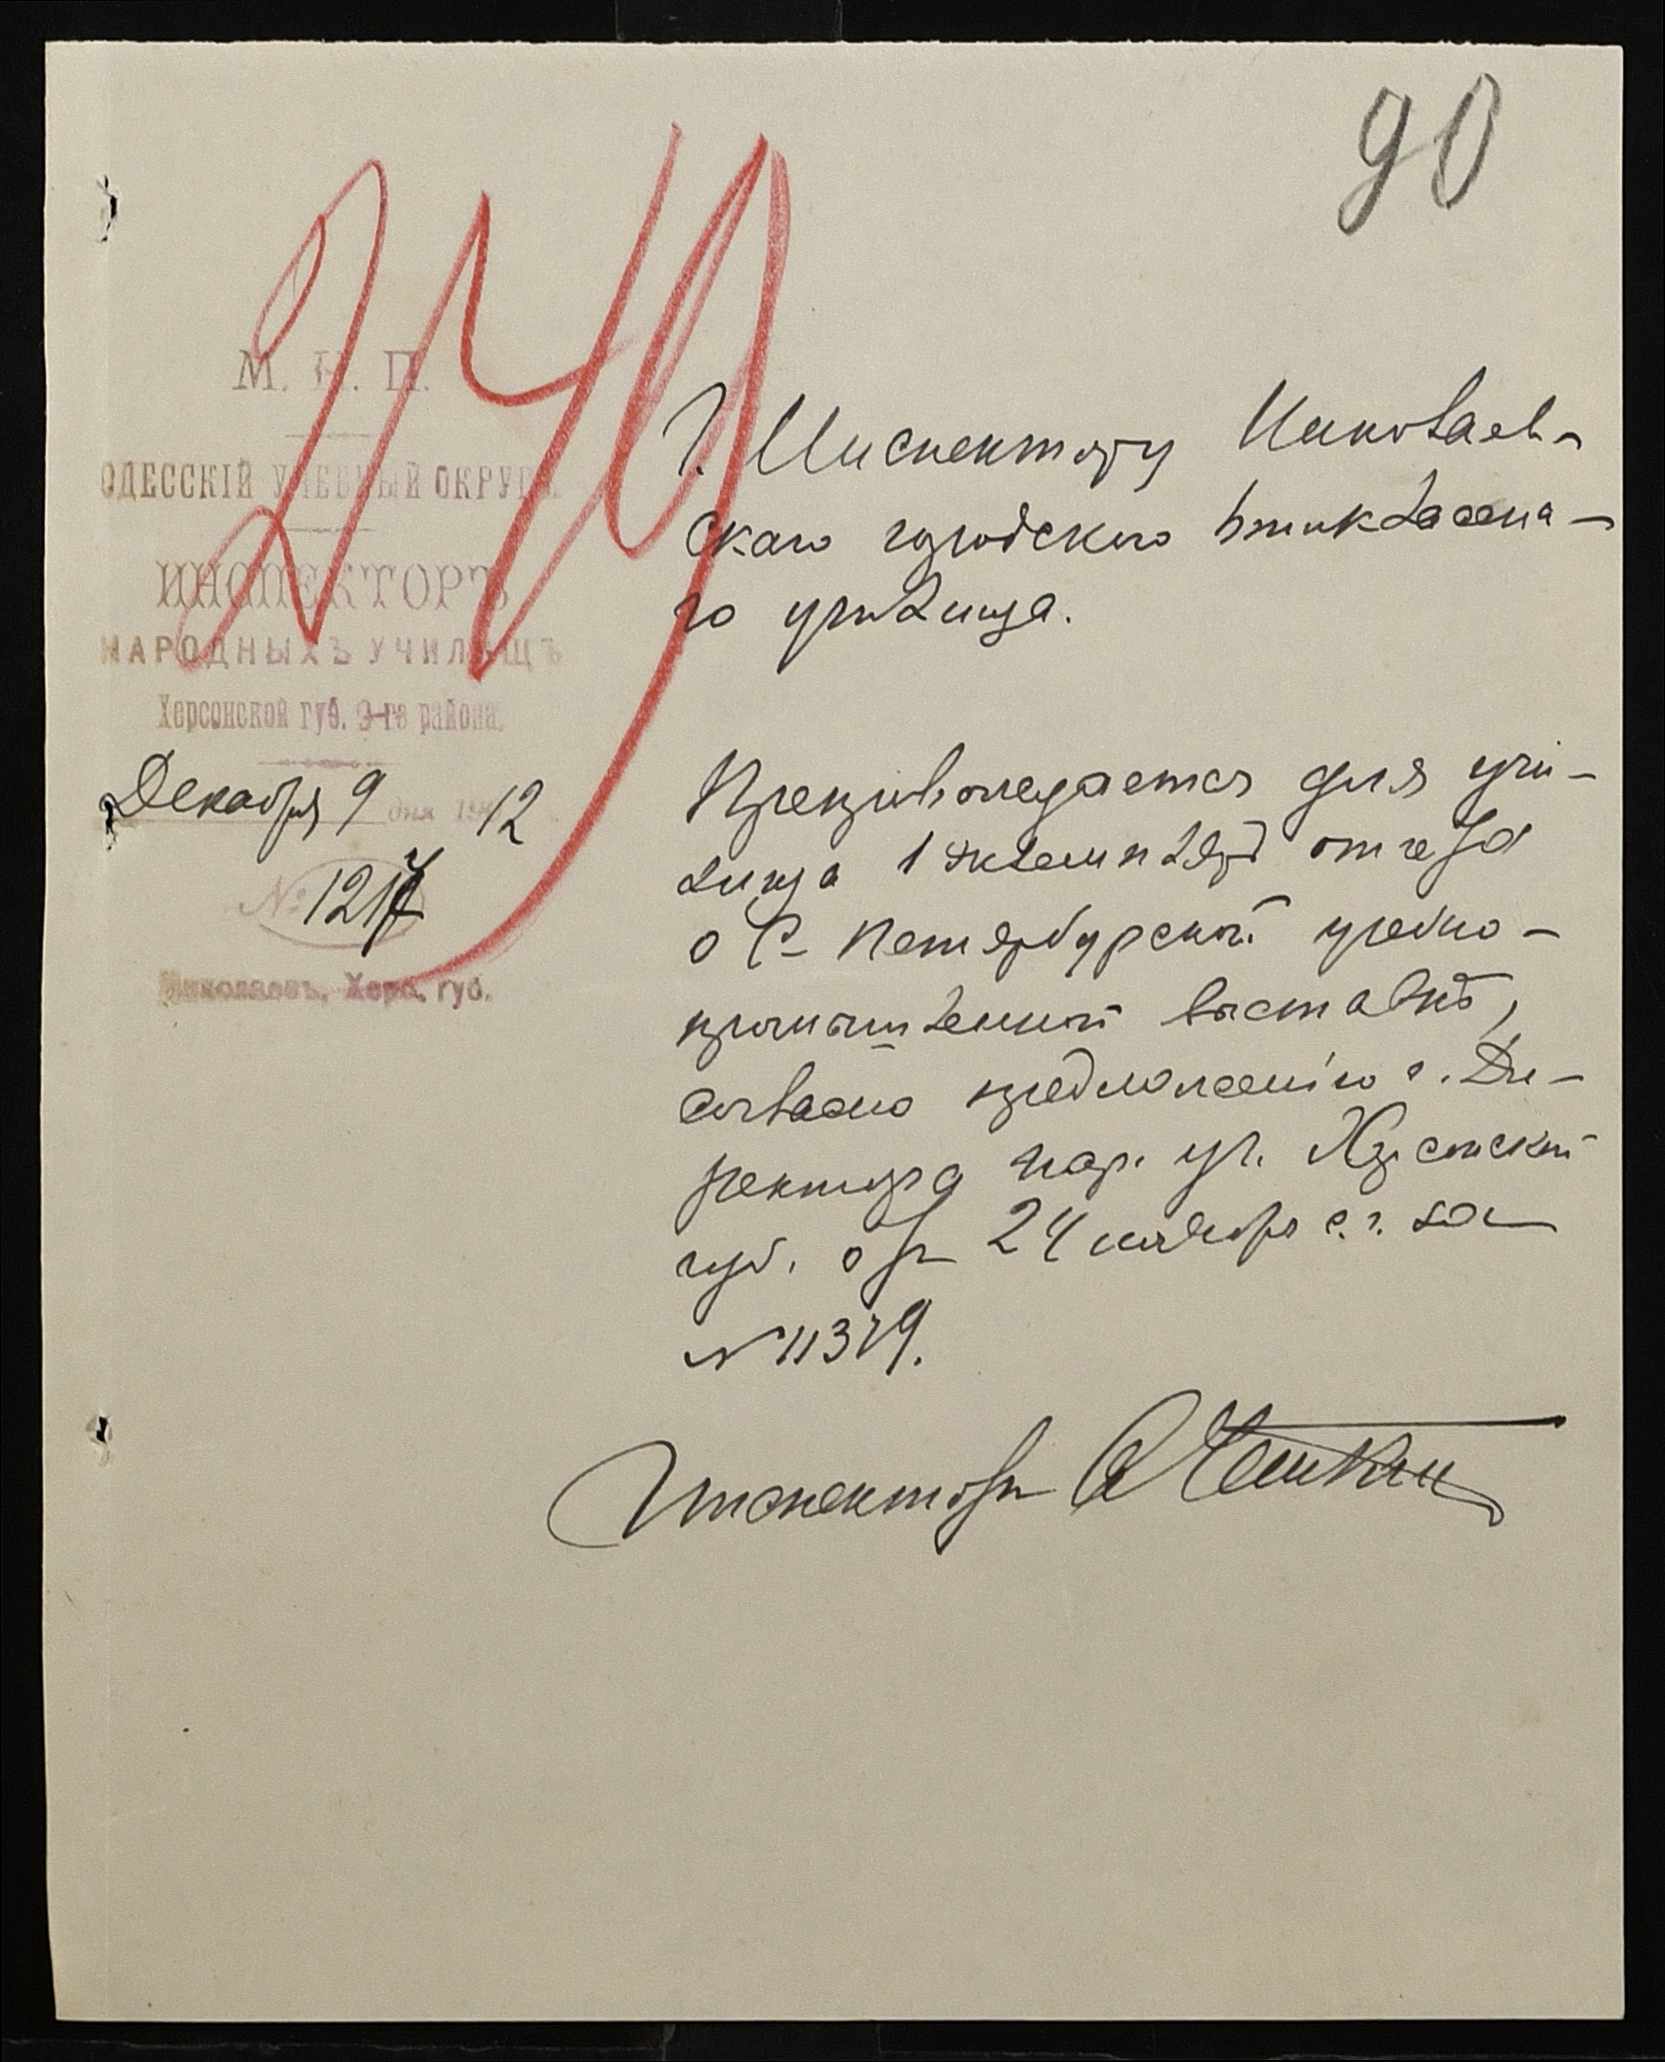 90
240
М. Н. П.
ОДЕССКІЙ УЧЕБНЫЙ ОКРУГЪ
ИНСПЕКТОРЪ
НАРОДНЫХЪ УЧИЛИЩЪ
Херсонской губ. 3-го района.
Декабря 9 дня 1912
№ 1217
Николаевъ, Херс. губ.
Г. Инспектору Николаев-
скаго городского 4-хкласснa-
го училища.
Препровождается для учи-
лища 1 экземпляръ отчета
о С-Петербургской учебно-
промышленной выставкѣ,
согласно предложенію г. Ди-
ректора нар. уч. Херсонской
губ. отъ 24 ноября с. г. за
№ 11379.
Инспекторъ